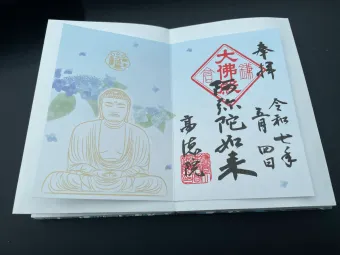 奉拝
令和七年
五月四日
大佛
阿弥陀如来
高徳院